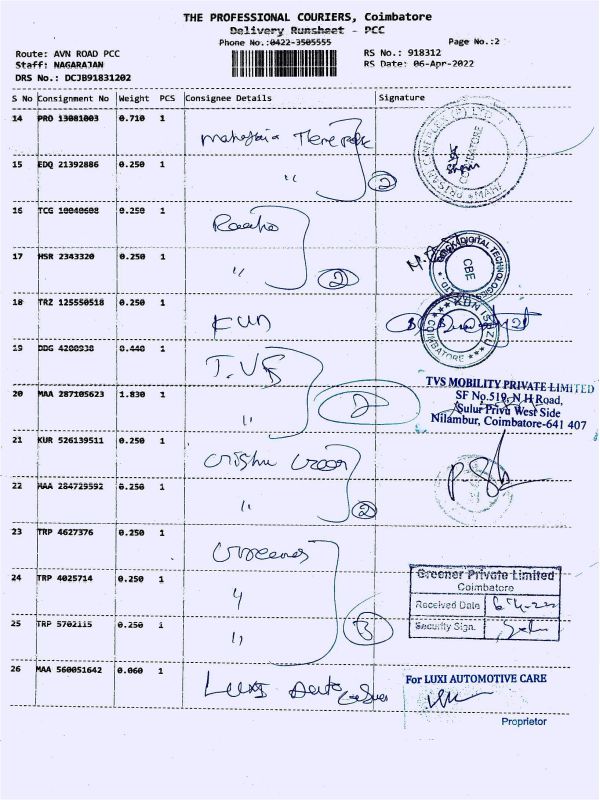 THE PROFESSIONAL COURIERS, Coimbatore
Delivery Runsheet - PCC
Phone No.:0422-3505555
Page No.:2
Route: AVN ROAD PCC
RS No.: 918312
Staff: NAGARAJAN
RS Date: 06-Apr-2022
DRS No.: DCJB91831202
S No Consignment No Weight PCS Consignee Details Signature
14 PRO 13081003 0.710 1
15 EDQ 21392886 0.250 1 "
16 TCG 10040608 0.250 1
17 HSR 2343320 0.250 1 " 2
18 TRZ 125550518 0.250 1 KUN
19 DDG 4200938 0.440 1 T.V.S
20 MAA 287105623 1.830 1 " 2
TVS MOBILITY PRIVATE LIMITED
SF No.519, N.H.Road,
Sulur Privu West Side
Nilambur, Coimbatore-641 407
21 KUR 526139511 0.250 1
22 MAA 284729592 0.250 1 " 2
23 TRP 4627376 0.250 1
24 TRP 4025714 0.250 1 "
25 TRP 5702115 0.250 1 " 3
Greener Private Limited
Coimbatore
Received Date
Security Sign.
26 MAA 560051642 0.060 1 Luxi Auto
For LUXI AUTOMOTIVE CARE
Proprietor